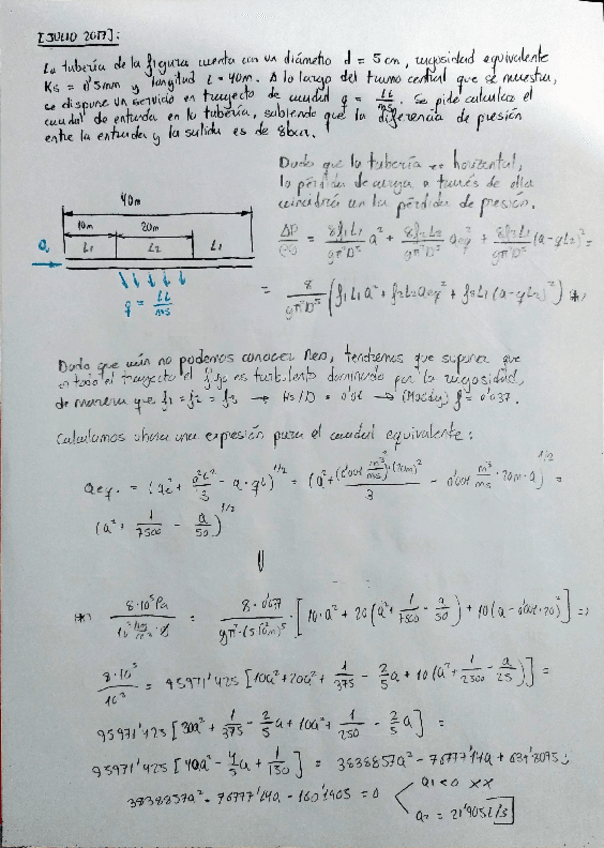 [JULIO 2017]:
La tubería de la figura cuenta con un diámetro d = 5 cm, rugosidad equivalente
Ks = 0'5mm y longitud L = 40m. A lo largo del tramo central que se muestra,
se dispone un servicio en trayecto de caudal q = 1L/m·s. Se pide calcular el
caudal de entrada en la tubería, sabiendo que la diferencia de presión
entre la entrada y la salida es de 8bar.
Dado que la tubería es horizontal,
la pérdida de carga a través de ella
coincidirá con la pérdida de presión.
40m
10m 20m
L1 L2 L1
Q
q = 1L/m·s
ΔP/ρg = 8f1L1/gπ²D⁵ Q² + 8f2L2/gπ²D⁵ Qeq² + 8f3L1/gπ²D⁵ (Q-qL2)² =
= 8/gπ²D⁵ (f1L1Q² + f2L2Qeq² + f3L1(Q-qL2)²) (*)
Dado que aún no podemos conocer Reo, tendremos que suponer que
en todo el trayecto el flujo es turbulento dominado por la rugosidad,
de manera que f1 = f2 = f3 → Ks/D = 0'01 → (Moody) f = 0'037.
Calculamos ahora una expresión para el caudal equivalente:
Qeq. = (Q² + q²L²/3 - Q·qL)^1/2 = (Q² + (0'001 m³/ms)²·(20m)²/3 - 0'001 m³/ms · 20m·Q)^1/2 =
(Q² + 1/7500 - Q/50)^1/2
⇓
(*) 8·10⁵Pa / = 8·0'037/gπ²·(5·10⁻²m)⁵ · [10·Q² + 20(Q² + 1/7500 - Q/50) + 10(Q - 0'001·20)²] ⇒
8·10⁵/10³ = 95971'425 [10Q² + 20Q² + 1/375 - 2/5Q + 10(Q² + 1/2500 - Q/25)] =
95971'425 [30Q² + 1/375 - 2/5Q + 10Q² + 1/250 - 2/5Q] =
95971'425 [40Q² - 4/5Q + 1/150] = 3838857Q² - 76777'14Q + 639'8095;
3838857Q² - 76777'14Q - 160'1905 = 0
Q1 < 0 xx
Q2 = 21'905L/s